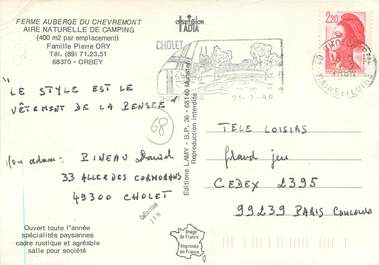 FERME AUBERGE DU CHEVREMONT
AIRE NATURELLE DE CAMPING
(400 m2 par emplacement)
Famille Pierre ORY
Tél.: (89) 71.23.51
68370 - ORBEY
"LE STYLE EST LE
VÊTEMENT DE LA PENSEE"
68
PINEAU David
33 ALLEE DES CORMORANS
49300 CHOLET
Ouvert toute l'année
spécialités paysannes
cadre rustique et agréable
salle pour société
Editions LAMY - B.P. 36 - 68140 Munster
Reproduction interdite
Image de
France
Imprimée en
France
CHOLET
2,20
TELE LOISIRS
Grand jeu
CEDEX 2395
99239 PARIS Concours